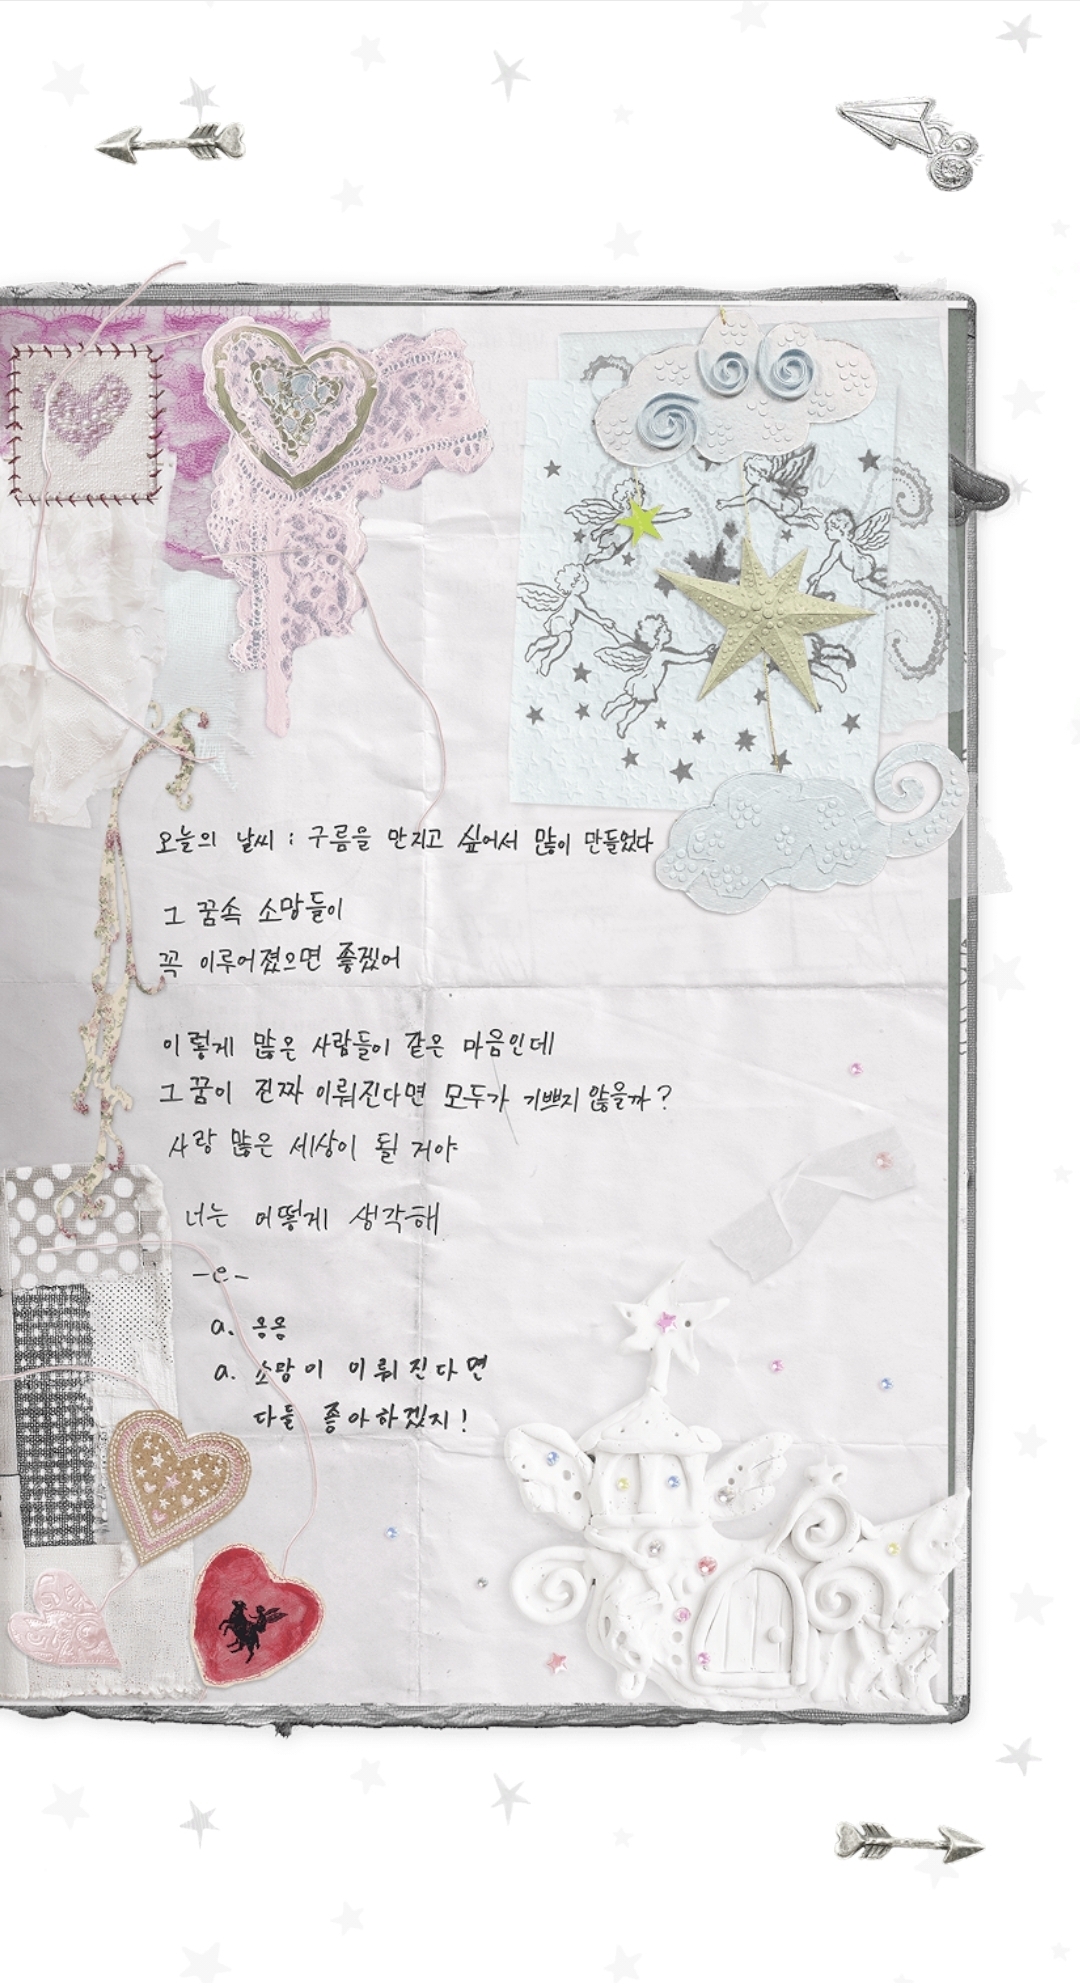 오늘의 날씨 : 구름을 만지고 싶어서 많이 만들었다
그 꿈속 소망들이
꼭 이루어졌으면 좋겠어
이렇게 많은 사람들이 같은 마음인데
그 꿈이 진짜 이뤄진다면 모두가 기쁘지 않을까?
사랑 많은 세상이 될 거야
너는 어떻게 생각해
-e-
a. 응응
a. 소망이 이뤄진다면
다들 좋아하겠지!